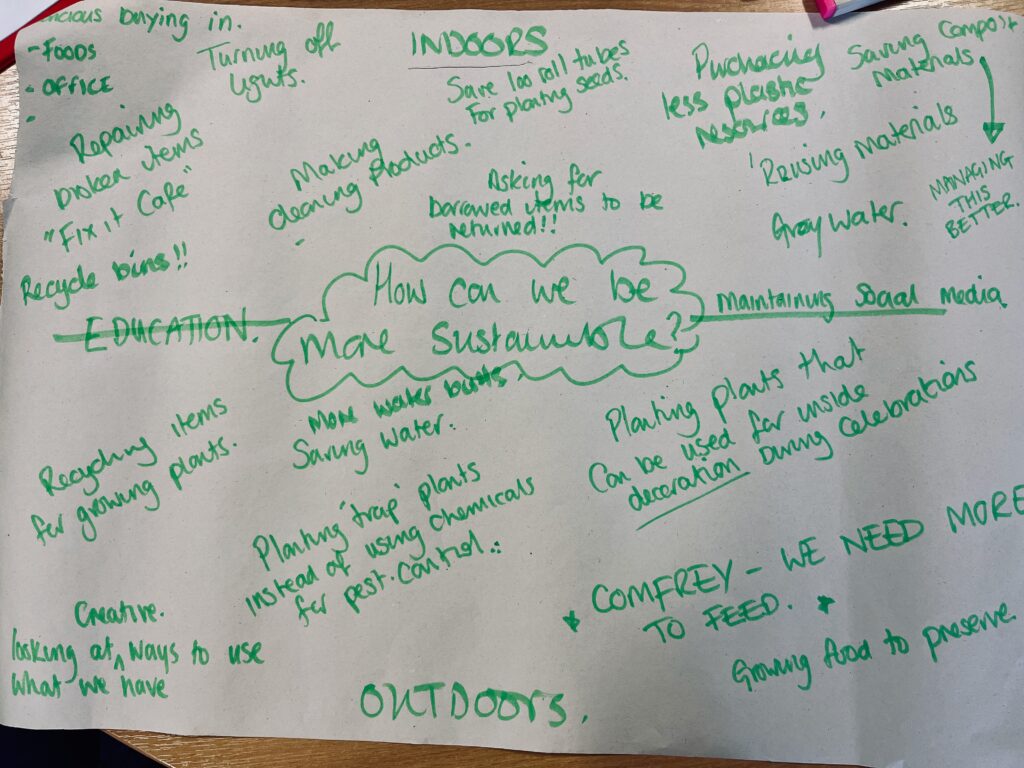 buying in.
- FOODS
- OFFICE
-
Turning off
lights.
INDOORS
Save loo roll tubes
For planting seeds.
Purchacing
less plastic
resources.
Saving Compost
Materials
MANAGING
THIS
BETTER.
Repairing
broken items
"Fix it Cafe"
Making
cleaning products.
-
Asking for
borrowed items to be
returned!!
Materials
Grey Water.
Recycle bins!!
EDUCATION.
How can we be
more Sustainable?
Maintaining Social Media
More water butts,
Saving Water.
Recycling items
for growing plants.
Planting "trap" plants
instead of using chemicals
for pest control.
Planting plants that
Can be used for inside
decoration During Celebrations
* COMFREY - WE NEED MORE
TO FEED. *
Growing food to preserve.
Creative.
looking at ^ ways to use
what we have
OUTDOORS.